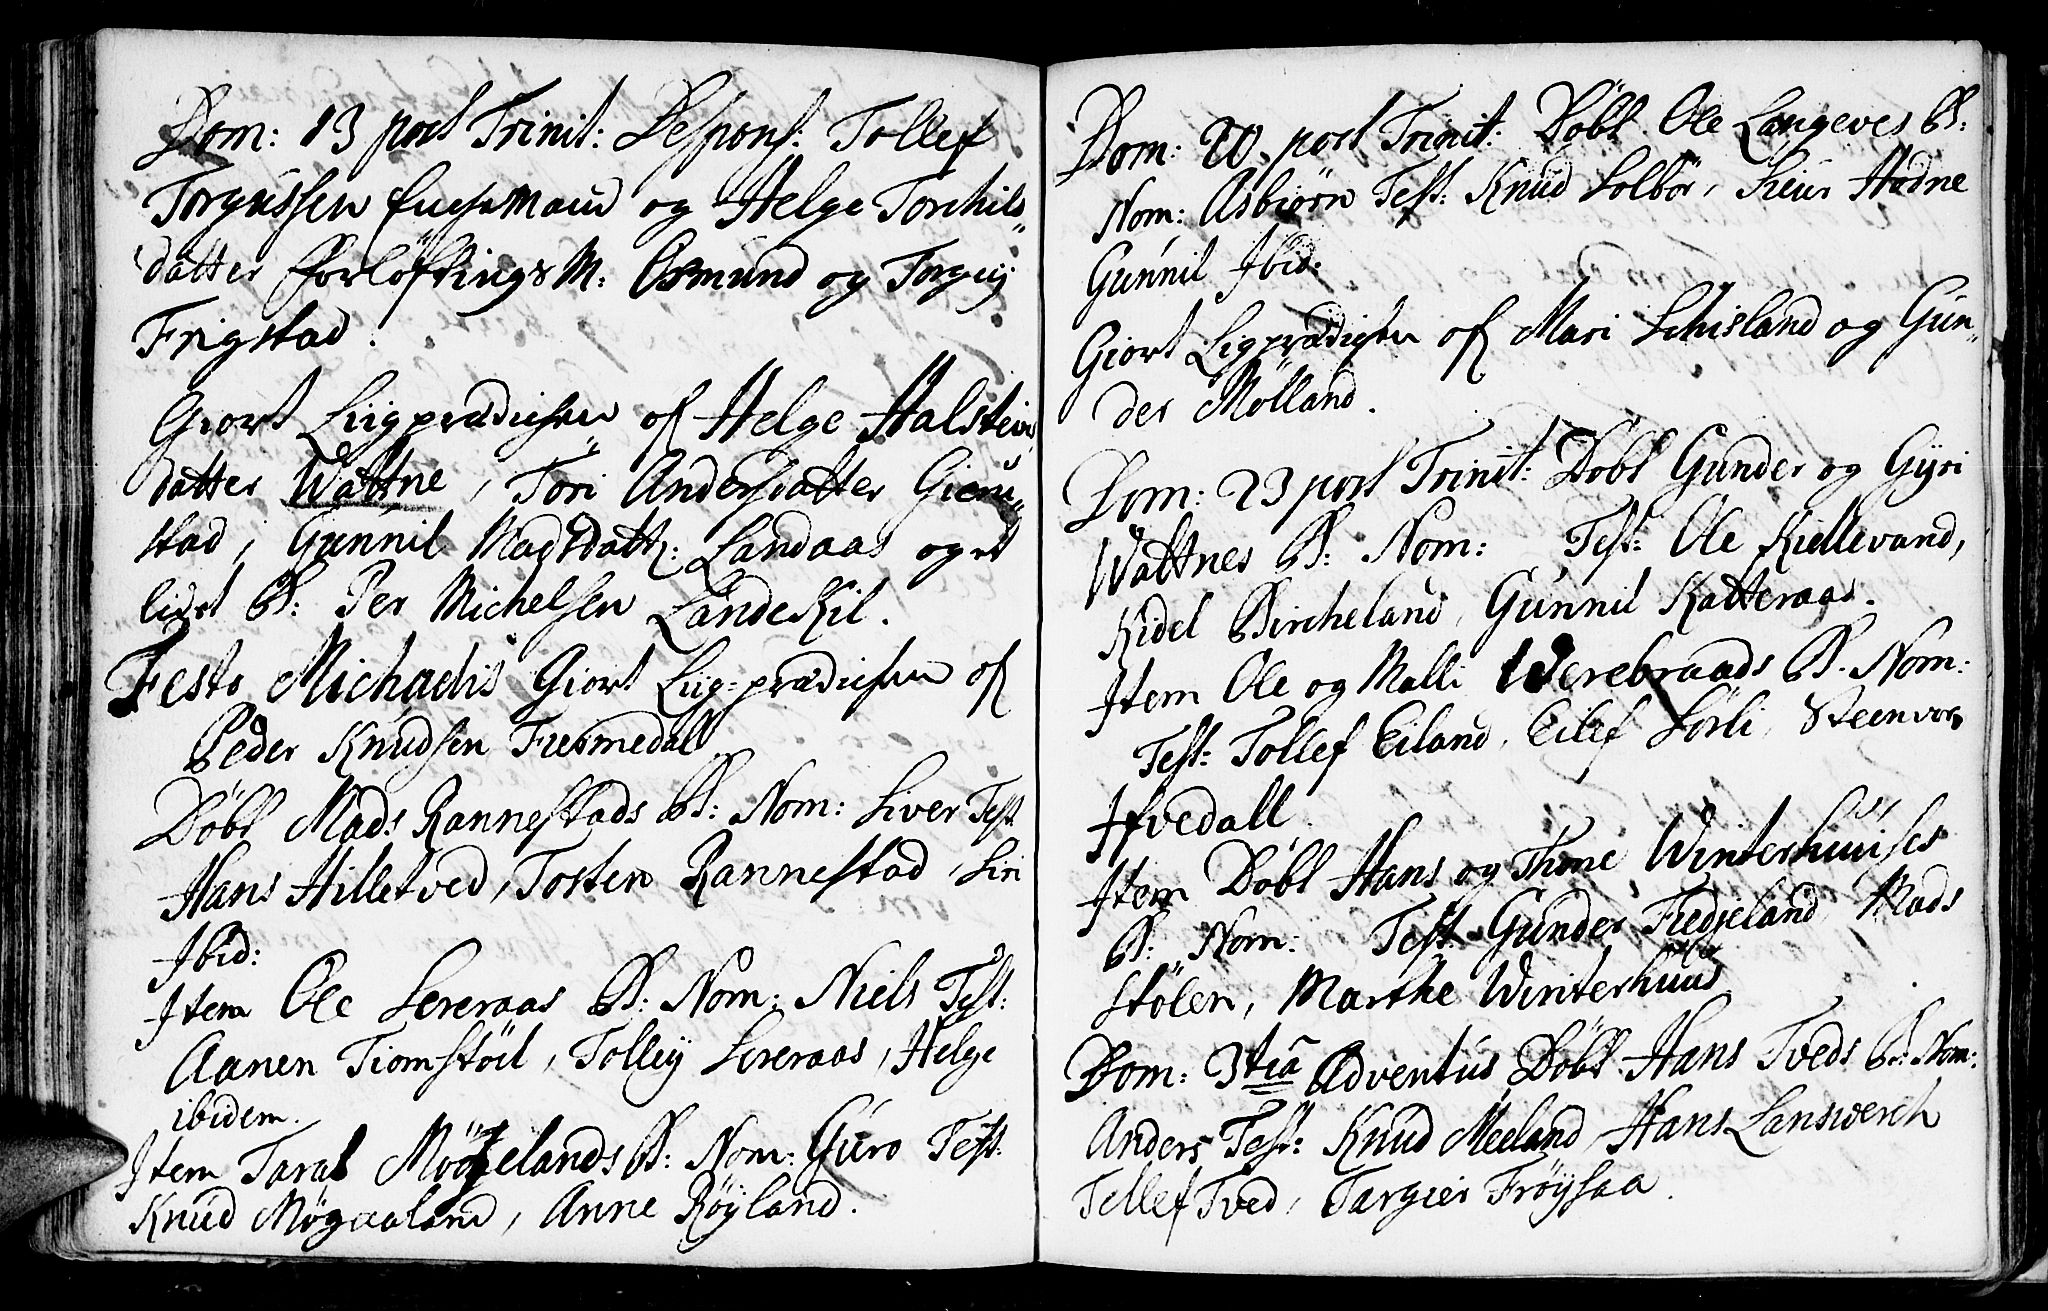 Dom: 13 post Trinit: Despons: Tollef
Torgussen Enche Mand og Helge Torchils„
datter Forløftings M: Osmund og Torgeij
Frigstad.
Giort Liigprædichen of Helge Halsteins
datter Wattne, Tori Andersdatter Gieru„
stad, Gunnil Madsdattr: Landaas og et
lidet B: Per Michelsen Landekil.
Festo Michaelis Giort Liig-prædichen of
Peder Knudsen Fiermedal
Døbt Mads Rannestads B: Nom: Siver Test.
Hans Hilletved, Tosten Rannestad, Siri
Ibid:
Item Ole Lereraas B: Nom: Niels Test:
Aanen Tiomstøil, Tolleij Lereraas, Helge
ibidem.
Item Taral Møgelands B: Nom: Guro Test:
Knud Møgaaland, Anne Røyland.
Dom: 20 post Trinit: Døbt Ole Langeves B:
Nom: Asbiørn Test: Knud Solbør, Siur Hadne
Gunnil Ibid:
Giort Ligprædichen of Mari Schisland og Gun„
der Mølland.
Dom: 23 post Trinit: Døbt Gunder og Gyri
Wattnes B: Nom: Test: Ole Kiellevand,
Kidel Bircheland, Gunnil Katteraas.
Item Ole og Malli Werebraads B. Nom:
Test: Tollef Eiland, Eilef Sørli, Steenvor
Ifvedall
Item Døbt Hans og Thone Winterhuuses
B: Nom: Test: Gunder Fredjeland, Mads
Stølen, Marthe Winterhuus
Dom: 3tia Adventus Døbt Hans Tveds B: Nom:
Anders Test: Knud Meeland, Hans Lanswerch
Tellef Tved, Targier Frøysaa.